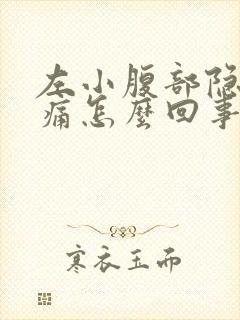 左小腹部隐
痛怎麽回事
寒衣玉而